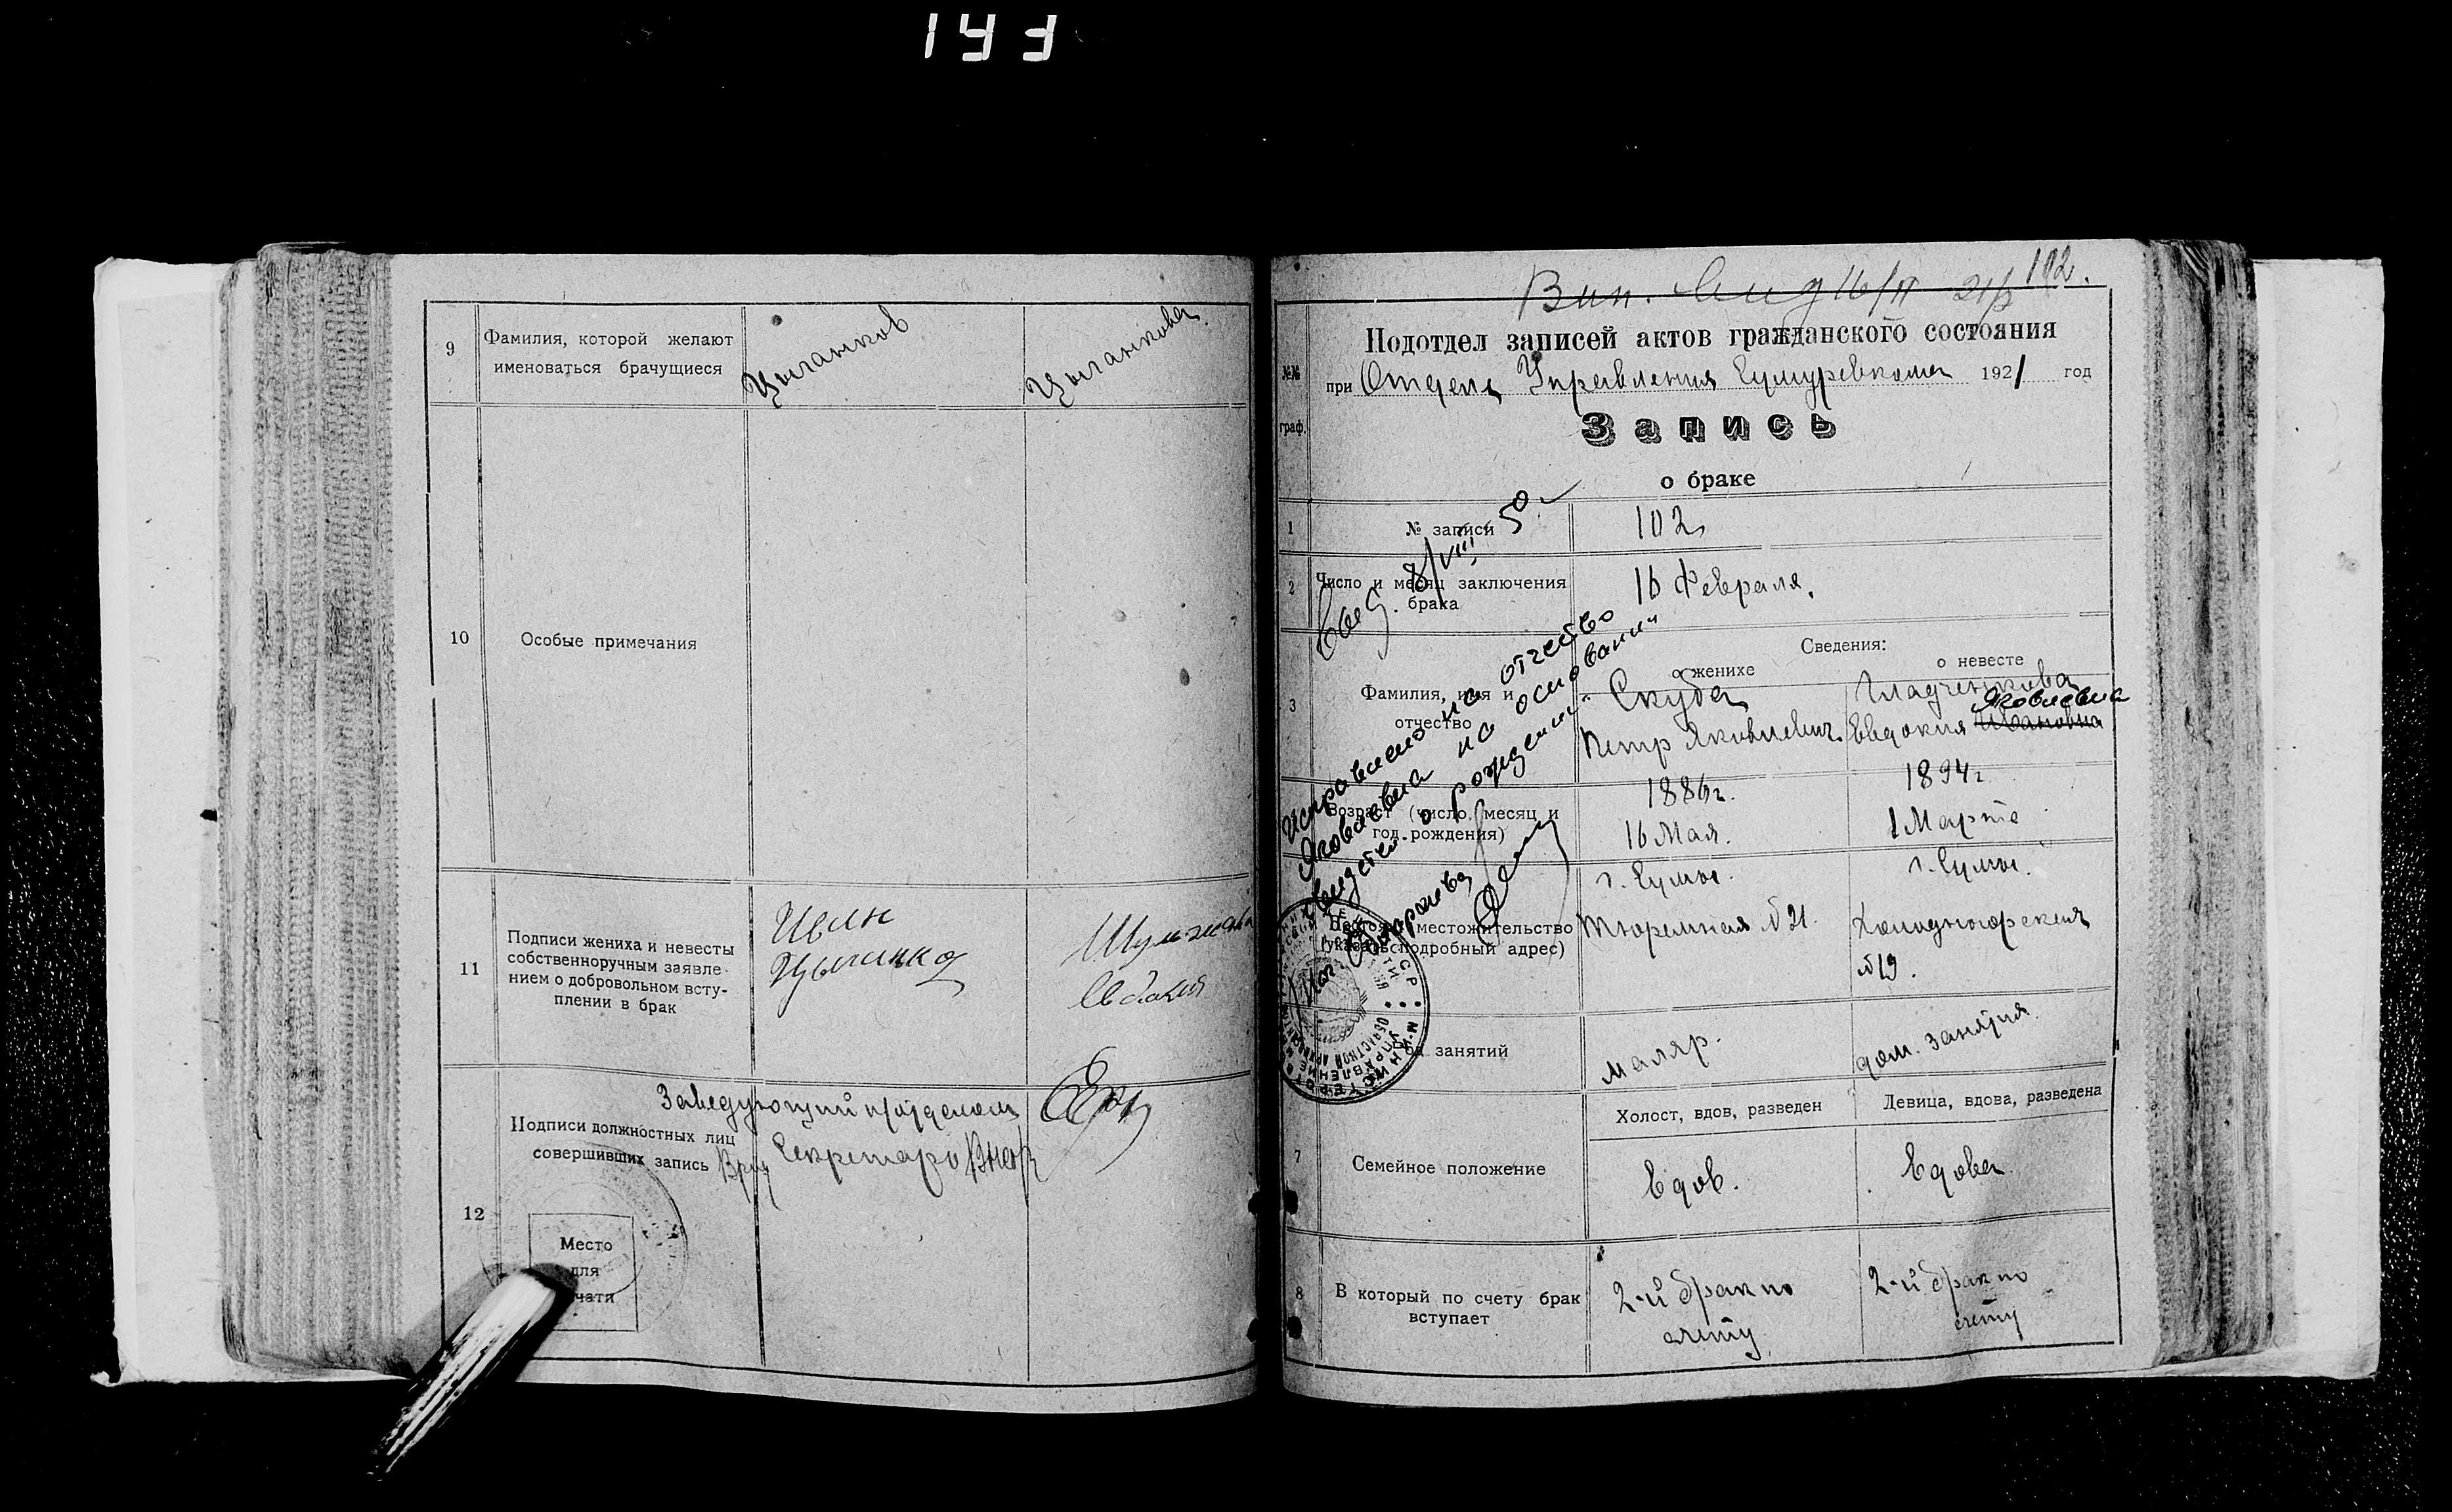 143
9
Фамилия, которой желают
именоваться брачущиеся
Цыганков
Цыганкова
10
Особые примечания
11
Подписи жениха и невесты
собственноручным заявле-
нием о добровольном всту-
плении в брак
Иван
Цыганков
Евдокия
12
Заведующий п/отделом
Подписи должностных лиц
совершивших запись
Секретарь
Место
для
чати
102.
Подотдел записей актов гражданского состояния
№№
граф.
при Отделе Управления Сумуревкома 1921 год
Запись
о браке
1
№ записи
102
2
Число и месяц заключения
брака
16 Февраля.
Сведения:
о женихе
о невесте
3
Фамилия, имя и
отчество
Скуба
Петр Яковлевич.
Гладченкова
Яковлевна
Евдокия Ивановна
Возраст (число, месяц и
год рождения)
1886г.
16 Мая.
1894г
1 Марта
местожительство
подробный адрес)
г. Сумы.
Тюремная №21.
г. Сумы.
Холодногорская
№19.
Род занятий
маляр.
дом. занятия
7
Семейное положение
Холост, вдов, разведен
Девица, вдова, разведена
Вдов.
Вдова
8
В который по счету брак
вступает
2-й брак по
счету
2-й брак по
счету
Свид. 8/VIII 50
Исправлено на отчество
Яковлевна на основании
свидетел. о рождении